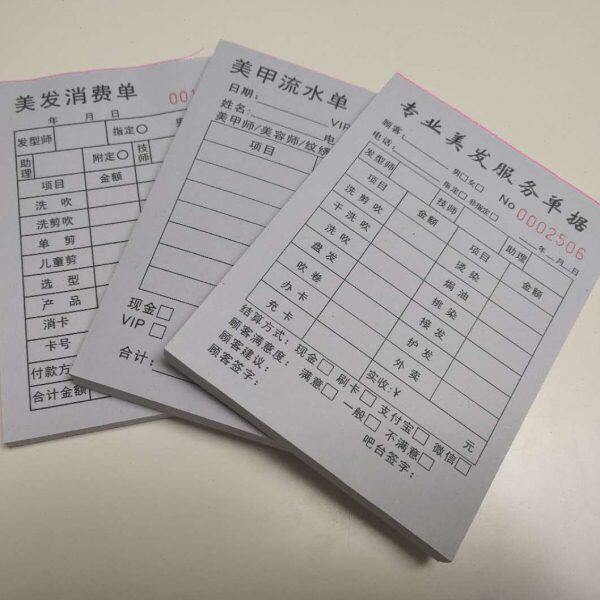 美发消费单
年 月 日
001
发型师 指定○
助理 附定○ 技师
项目 金额
洗吹
洗剪吹
单剪
儿童剪
选型
产品
消卡
卡号
付款方
合计金额
美甲流水单
日期:
姓名: VIP
美甲师/美容师/纹绣
项目
现金□
VIP□
合计:
专业美发服务单据
顾客: 男□女□ No 0002506
电话: 指定□非指定□ 年 月 日
发型师 技师 助理
项目 金额 项目 金额
洗剪吹 烫染
干洗吹 焗油
洗吹 挑染
盘发 接发
吹卷 护发
办卡 外卖
充卡 实收:¥ 元
结算方式: 现金□ 刷卡□ 支付宝□ 微信□
顾客满意度: 满意□ 一般□ 不满意□
顾客建议:
顾客签字: 吧台签字: